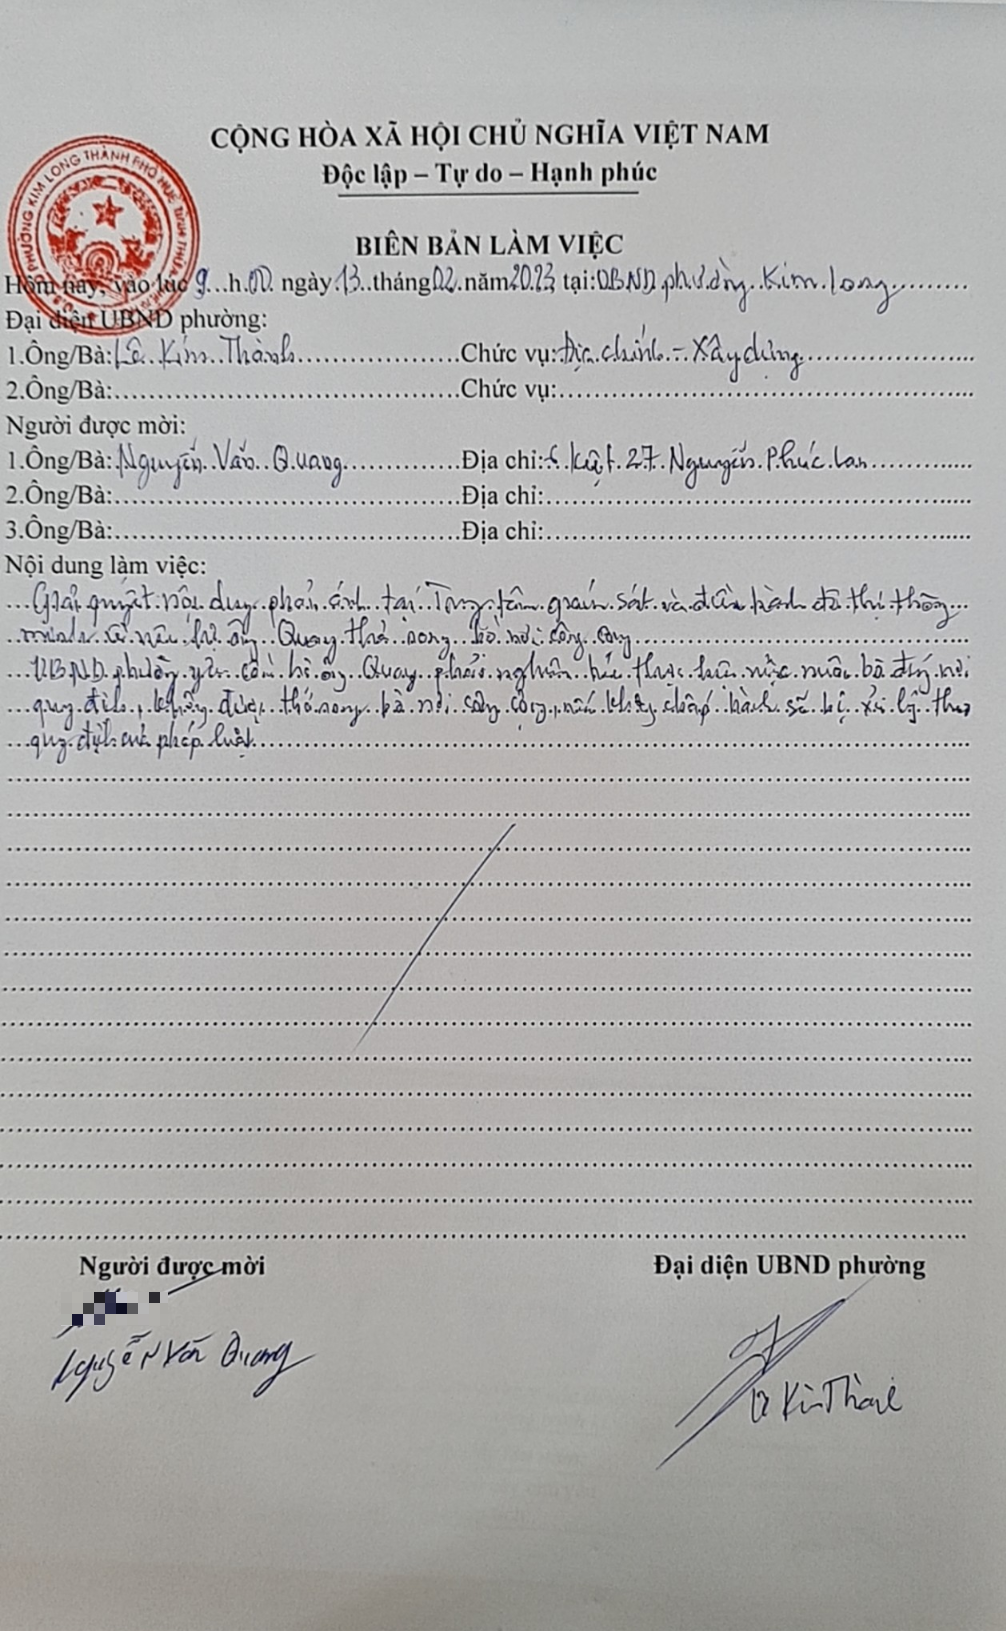 CỘNG HÒA XÃ HỘI CHỦ NGHĨA VIỆT NAM
Độc lập – Tự do – Hạnh phúc
PHƯỜNG KIM LONG THÀNH PHỐ HUẾ TỈNH THỪA
BIÊN BẢN LÀM VIỆC
Hôm nay, vào lúc 9 h 00 ngày 13 tháng 02 năm 2023 tại: UBND phường Kim Long
Đại diện UBND phường:
1.Ông/Bà: Lê Kim Thành Chức vụ: Địa chính - Xây dựng
2.Ông/Bà: Chức vụ:
Người được mời:
1.Ông/Bà: Nguyễn Văn Quang Địa chỉ: kiệt 27 Nguyễn Phúc Lan
2.Ông/Bà: Địa chỉ:
3.Ông/Bà: Địa chỉ:
Nội dung làm việc:
Giải quyết nội dung phản ánh tại Trung tâm giám sát và điều hành đô thị thông
minh về việc hộ ông Quang thả rong bò nơi công cộng
UBND phường yêu cầu hộ ông Quang phải nghiêm túc thực hiện việc nuôi bò đúng nơi
quy định, không được thả rong bò nơi công cộng, nếu không chấp hành sẽ bị xử lý theo
quy định của pháp luật
Người được mời Đại diện UBND phường
Nguyễn Văn Quang
Lê Kim Thành